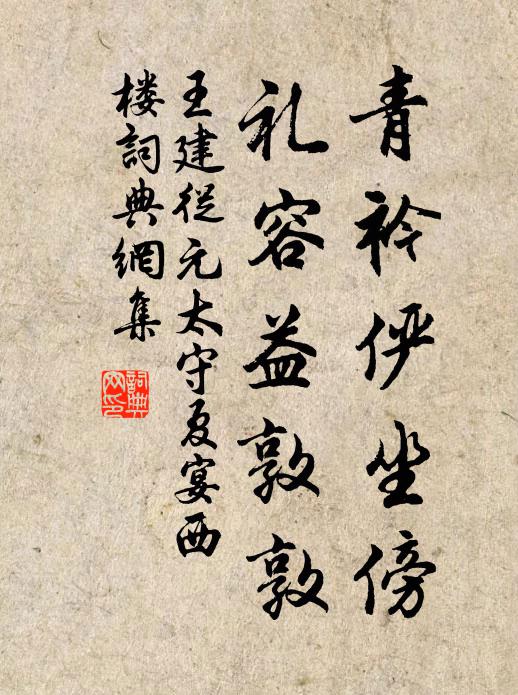 青衿俨坐傍
礼容益敦敦
王建從元太守夏宴西
楼詞典網集
詞典
网印